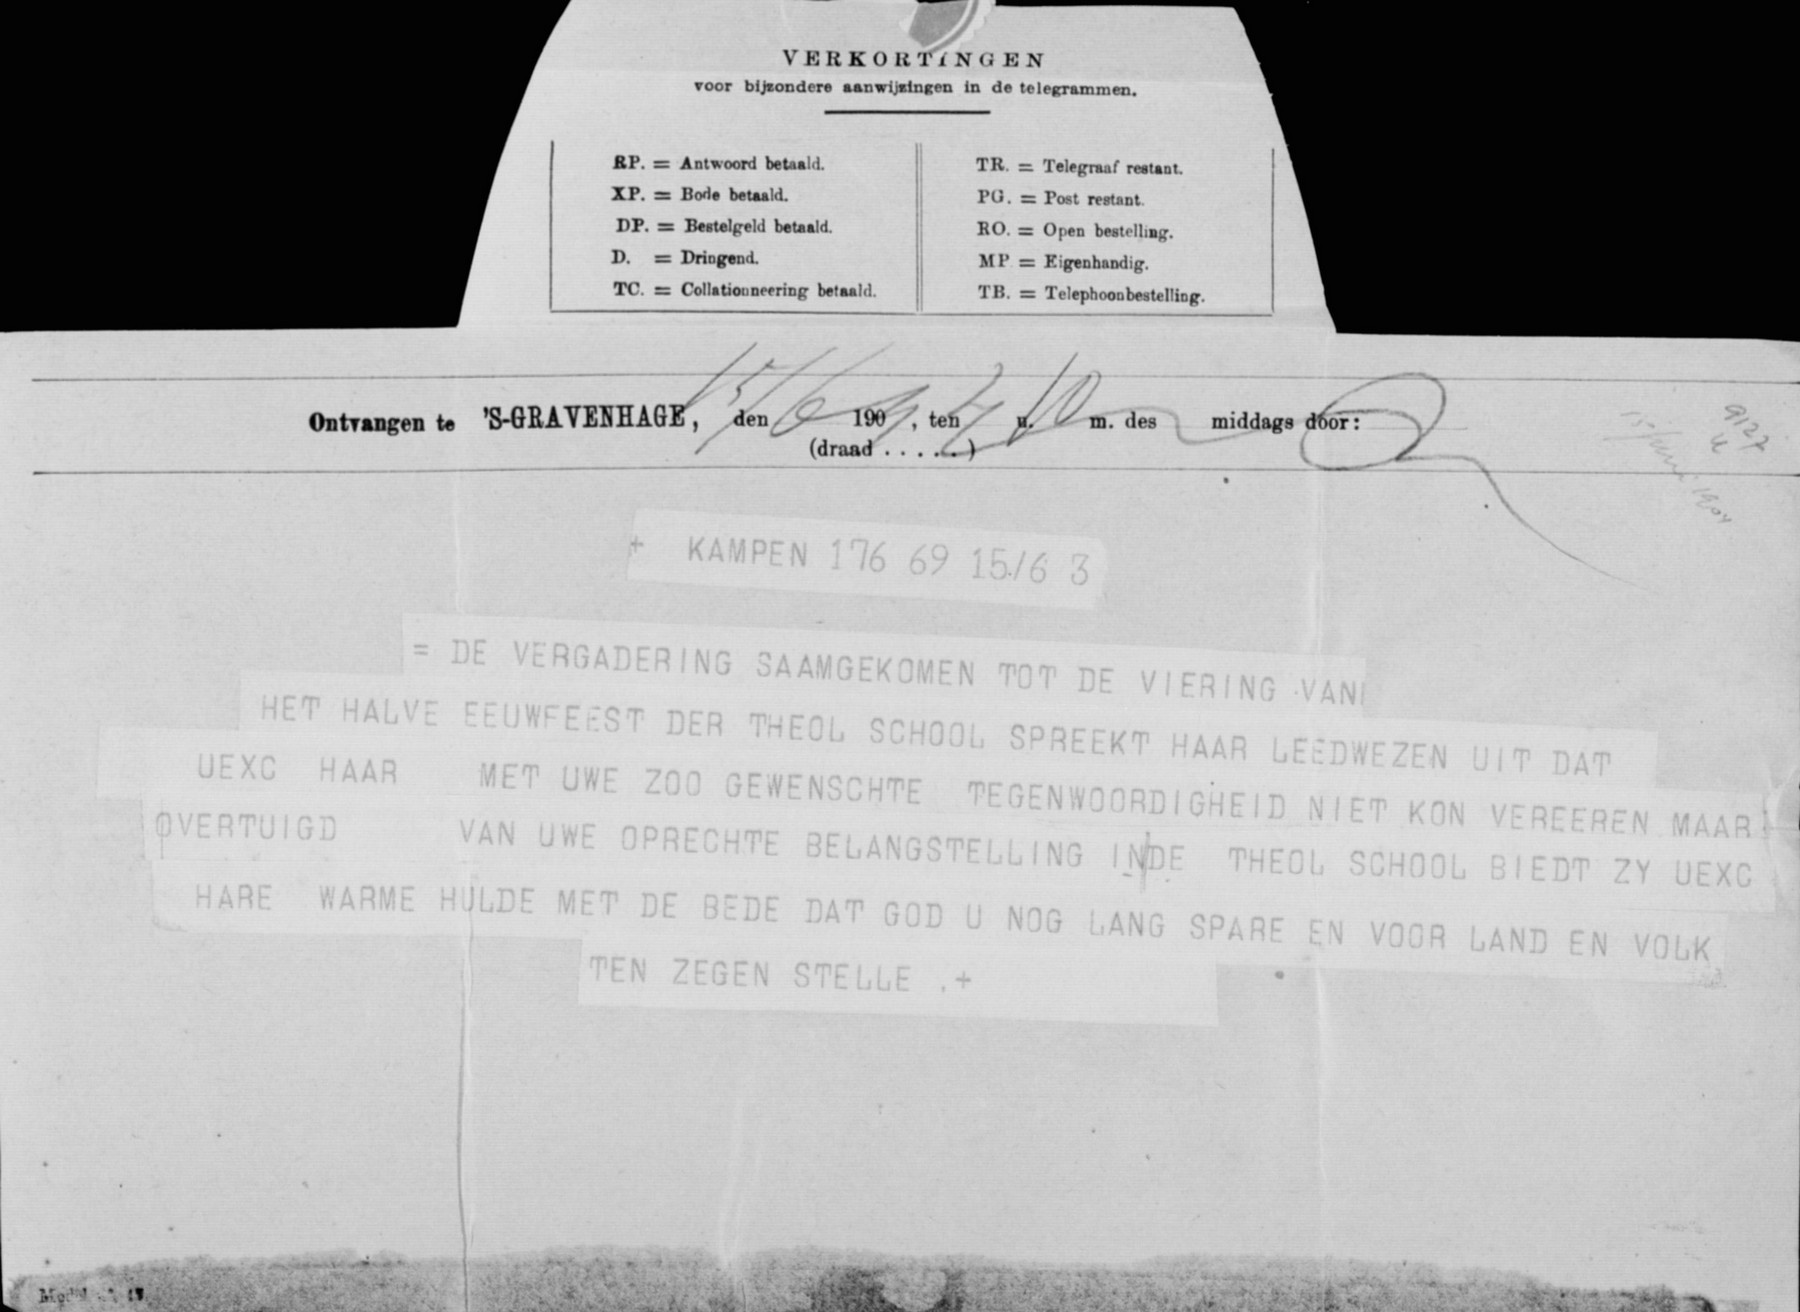 VERKORTINGEN
voor bijzondere aanwijzingen in de telegrammen.
RP. = Antwoord betaald.
XP. = Bode betaald.
DP. = Bestelgeld betaald.
D. = Dringend.
TC. = Collationneering betaald.
TR. = Telegraaf restant.
PG. = Post restant.
RO. = Open bestelling.
MP = Eigenhandig.
TB. = Telephoonbestelling.
Ontvangen te 'S-GRAVENHAGE, den 15/6 1904, ten 4 u. 10 m. des middags door:
(draad . . . . . .)
9127
15 Juni 1904
+ KAMPEN 176 69 15/6 3
= DE VERGADERING SAAMGEKOMEN TOT DE VIERING VAN
HET HALVE EEUWFEEST DER THEOL SCHOOL SPREEKT HAAR LEEDWEZEN UIT DAT
UEXC HAAR MET UWE ZOO GEWENSCHTE TEGENWOORDIGHEID NIET KON VEREEREN MAAR
OVERTUIGD VAN UWE OPRECHTE BELANGSTELLING IN DE THEOL SCHOOL BIEDT ZY UEXC
HARE WARME HULDE MET DE BEDE DAT GOD U NOG LANG SPARE EN VOOR LAND EN VOLK
TEN ZEGEN STELLE .+